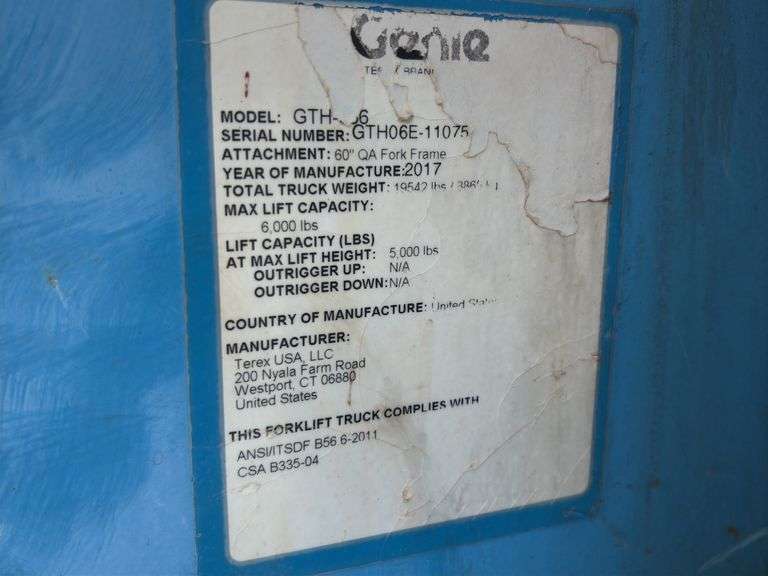 Genie
MODEL: GTH-
SERIAL NUMBER: GTH06E-11075
ATTACHMENT: 60" QA Fork Frame
YEAR OF MANUFACTURE: 2017
TOTAL TRUCK WEIGHT: 19542 lbs /
MAX LIFT CAPACITY:
6,000 lbs
LIFT CAPACITY (LBS)
AT MAX LIFT HEIGHT: 5,000 lbs
OUTRIGGER UP: N/A
OUTRIGGER DOWN: N/A
COUNTRY OF MANUFACTURE: United
MANUFACTURER:
Terex USA, LLC
200 Nyala Farm Road
Westport, CT 06880
United States
THIS FORKLIFT TRUCK COMPLIES WITH
ANSI/ITSDF B56 6-2011
CSA B335-04